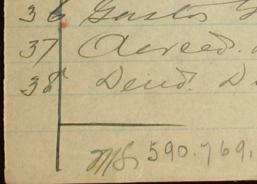 36 Gastos G
37 Acreed.
38 Deud. D
MS 590.769.